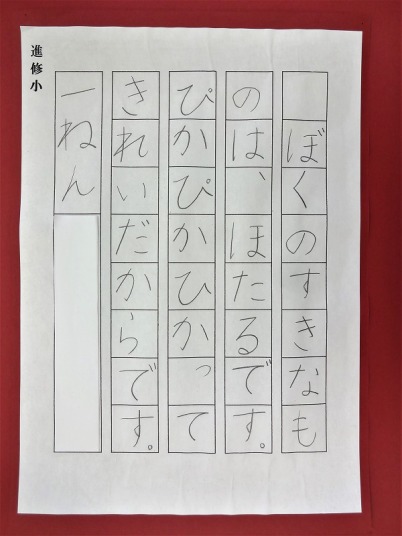 ぼくのすきなも
のは、ほたるです。
ぴかぴかひかって
きれいだからです。
一ねん
進修小